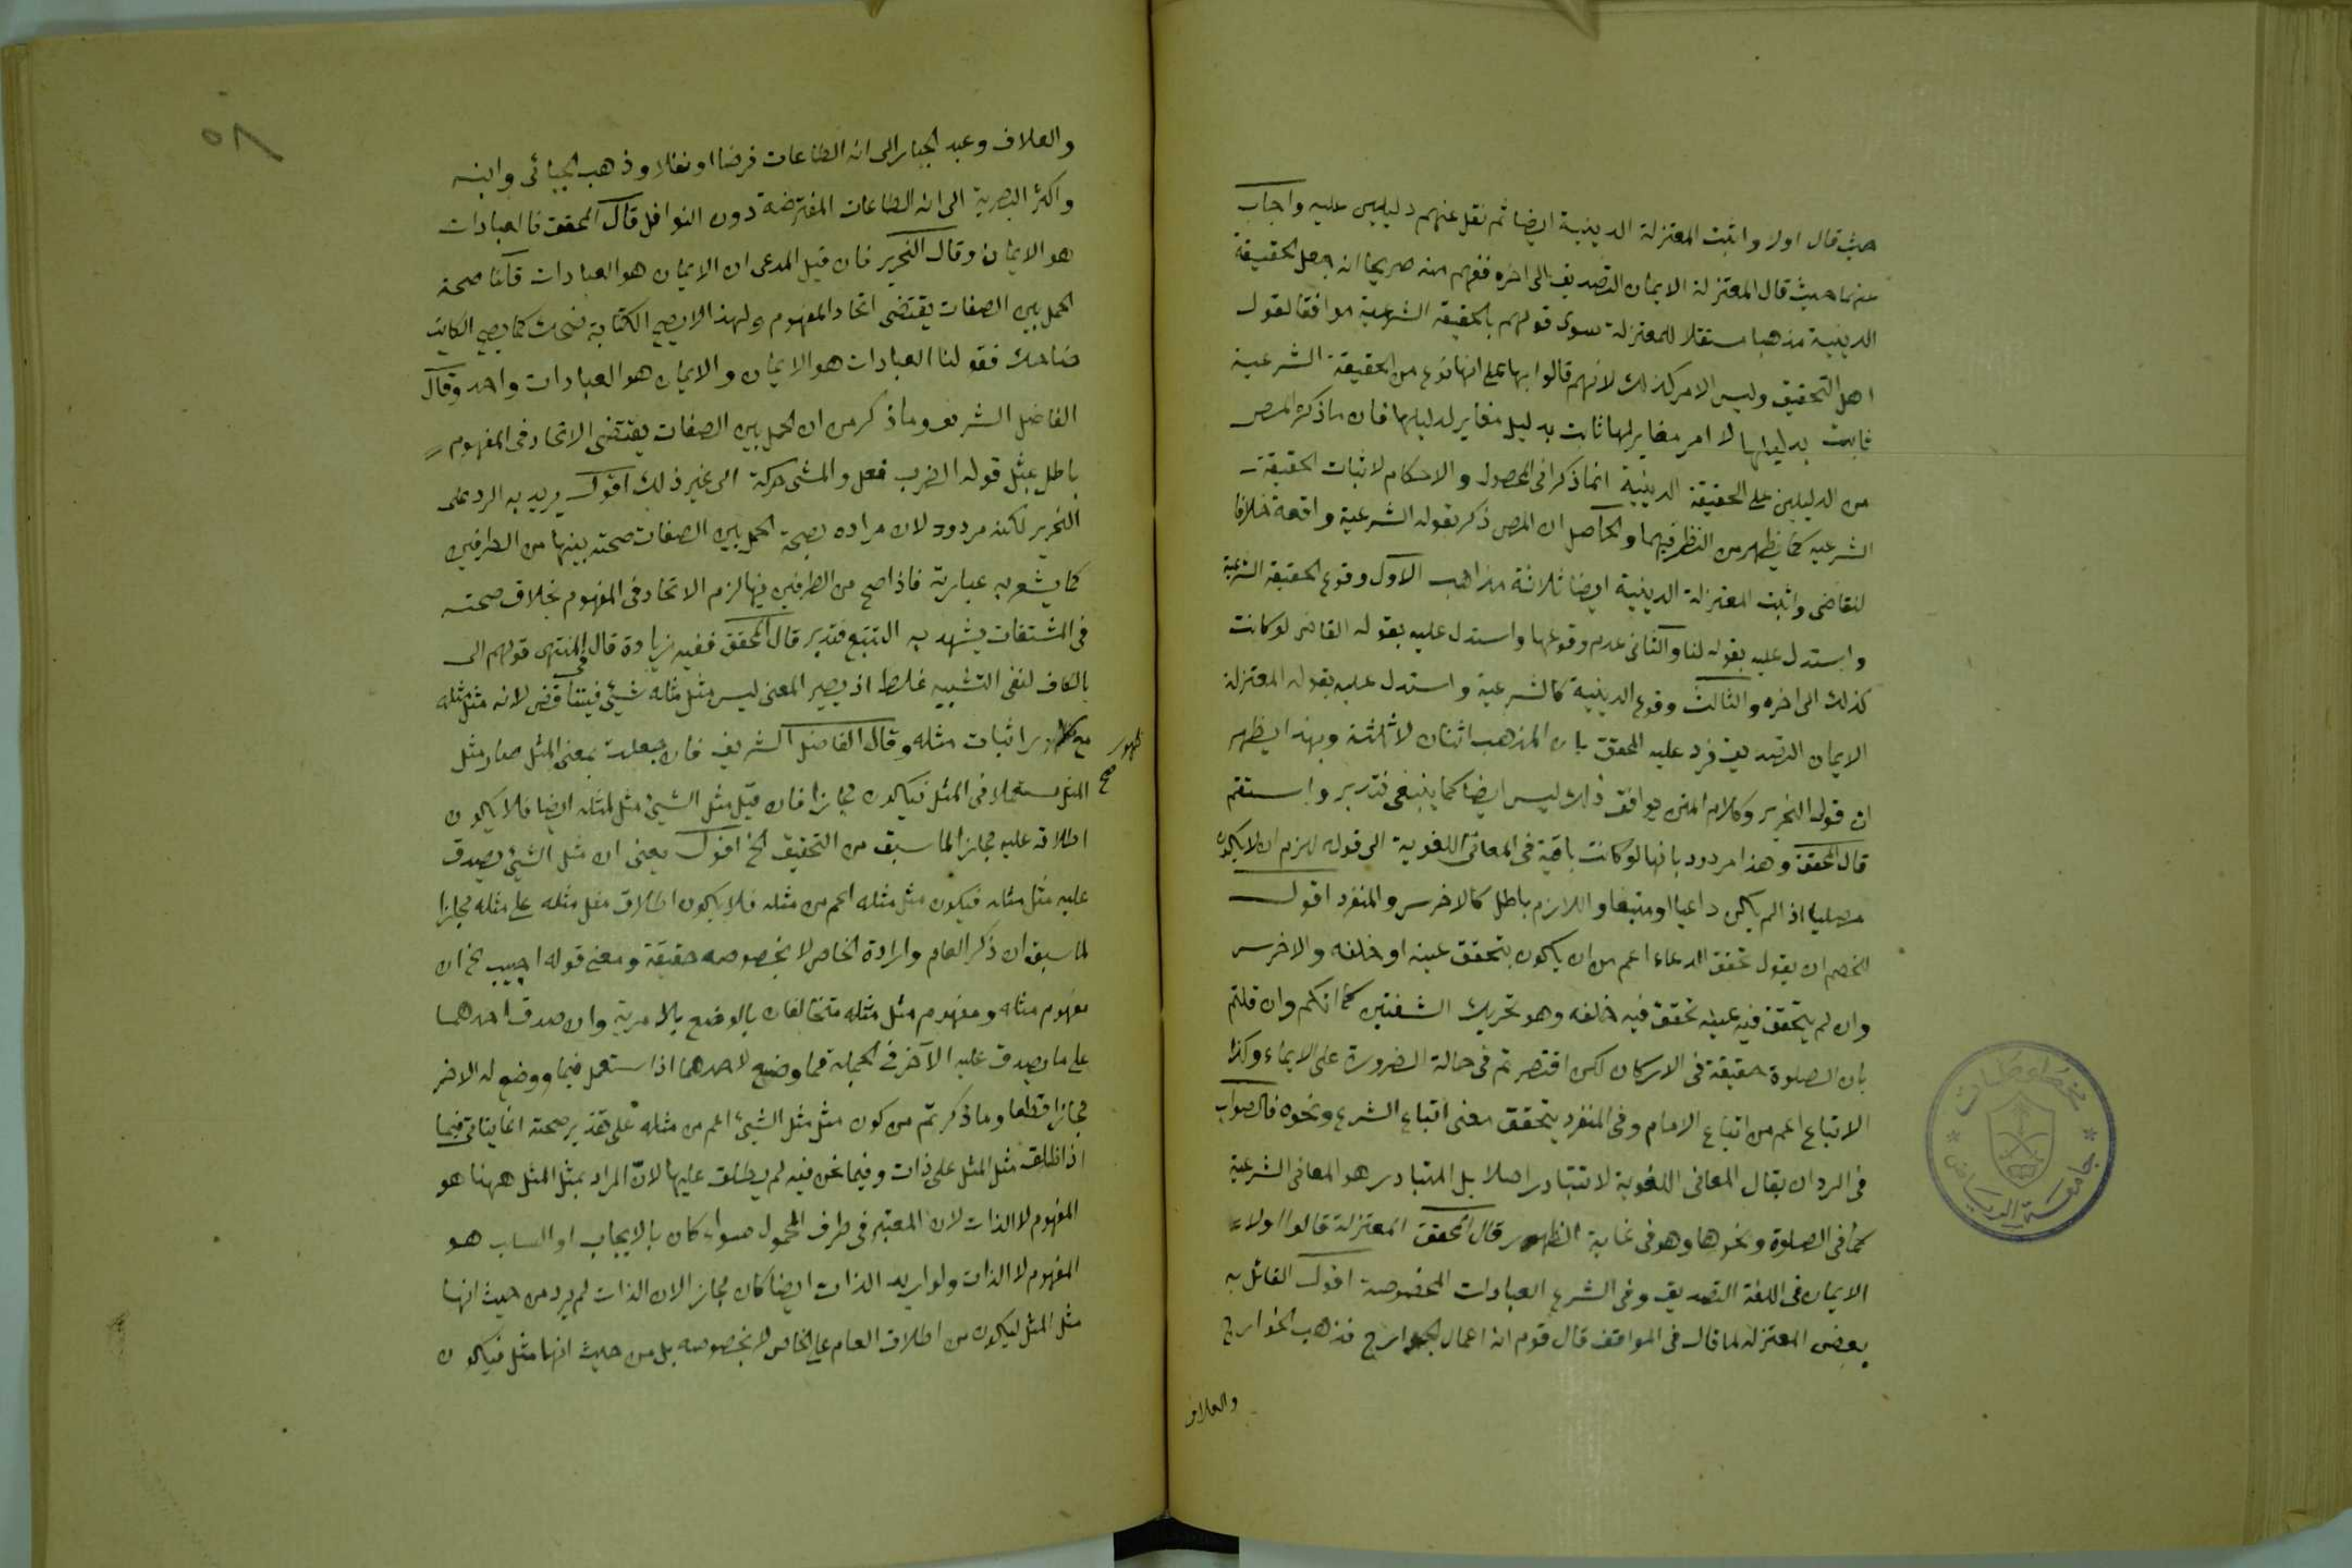 حيث قال اولا واثبت المعتزلة الدينية ايضا ثم نقل عنهم دليلين عليه واجاب
عنهما حيث قال المعتزلة الايمان التصديق الى اخره ففهم منه صريحا انه جعل الحقيقة
الدينية مذهبا مستقلا للمعتزلة سوى قولهم بالحقيقة الشرعية موافقا لقول
اهل التحقيق وليس الامر كذلك لانهم قالوا بها على انها نوع من الحقيقة الشرعية
ثابت بدليلها لا امر مغاير لها ثابت بدليل مغاير لدليلها فان ما ذكره المص
من الدليلين على الحقيقة الدينية انما ذكر في المحصول والاحكام لاثبات الحقيقة
الشرعية كما يظهر من النظر فيهما والحاصل ان المص ذكر بقوله الشرعية واقعة خلافا
للقاضى واثبت المعتزلة الدينية ايضا ثلاثة مذاهب الاول وقوع الحقيقة الشرعية
واستدل عليه بقوله لنا والثانى عدم وقوعها واستدل عليه بقوله القاضى لو كانت
كذلك الى اخره والثالث وقوع الدينية كالشرعية واستدل عليه بقوله المعتزلة
الايمان التصديق فرد عليه المحقق بان المذهب اثنان لا ثلثة وبهذا يظهر
ان قول النحرير وكلام المتن يوافق ذلك ليس ايضا كما ينبغى فتدبر واستقم
قال المحقق وهذا مردود بانها لو كانت باقية فى المعانى اللغوية الى قوله لزم ان لا يكون
مصليا اذا لم يكن داعيا او متبعا واللازم باطل كالاخرس والمنفرد اقول
للخصم ان يقول تحقق الدعاء اعم من ان يكون بتحقق عينه او خلفه والاخرس
وان لم يتحقق فيه عينه تحقق فيه خلفه وهو تحريك الشفتين كما انكم وان قلتم
بان الصلوة حقيقة فى الاركان لكن اقتصرتم فى حالة الضرورة على الايماء وكذا
الاتباع اعم من اتباع الامام وفى المنفرد يتحقق معنى اتباع الشرع ونحوه فالصواب
فى الرد ان يقال المعانى اللغوية لا تتبادر اصلا بل المتبادر هو المعانى الشرعية
كما فى الصلوة ونحوها وهو فى غاية الظهور قال المحقق المعتزلة قالوا اولا
الايمان فى اللغة التصديق وفى الشرع العبادات المخصوصة اقول القائل به
بعض المعتزلة لما قال فى المواقف قال قوم انه اعمال الجوارح فذهب الخوارج
والعلاف
٥٨
والعلاف وعبد الجبار الى انه الطاعات فرضا او نفلا وذهب الجبائى وابنه
واكثر البصرية الى انه الطاعات المفترضة دون النوافل قال المحقق فالعبادات
هو الايمان وقال النحرير فان قيل المدعى ان الايمان هو العبادات قلنا صحة
الحمل بين الصفات يقتضى اتحاد المفهوم ولهذا لا يصح الكتابة ضحك كما يصح الكاتب
ضاحك فقولنا العبادات هو الايمان والايمان هو العبادات واحد وقال
الفاضل الشريف وما ذكر من ان الحمل بين الصفات يقتضى الاتحاد فى المفهوم
باطل بمثل قوله الضرب فعل والمشى حركة الى غير ذلك اقول يريد به الرد على
النحرير لكنه مردود لان مراده بصحة الحمل بين الصفات صحته بينها من الطرفين
كما يشعر به عبارته فاذا صح من الطرفين فيها لزم الاتحاد فى المفهوم بخلاف صحته
فى المشتقات يشهد به التتبع فتدبر قال المحقق ففيه زيادة قال فى المنتهى قولهم الى
بالكاف لنفى التشبيه غلط اذ يصير المعنى ليس مثل مثله شئ فيتناقض لانه مثل مثله
مع ظهور اثبات مثله وقال الفاضل الشريف فان جعلت بمعنى المثل صار مثل
ظهور صح
المثل مستعملا فى المثل فيكون مجازا فان قيل مثل الشئ مثل لمثله ايضا فلا يكون
اطلاقه عليه مجازا لما سبق من التحقيق الخ اقول يعنى ان مثل الشئ يصدق
عليه مثل مثله فيكون مثل مثله اعم من مثله فلا يكون اطلاق مثل مثله على مثله مجازا
لما سبق ان ذكر العام وارادة الخاص لا بخصوصه حقيقة ومعنى قوله اجيب الخ ان
مفهوم مثله ومفهوم مثل مثله متخالفان بالوضع بلا مرية وان صدق احدهما
على ما يصدق عليه الآخر فى الجملة فما وضع لاحدهما اذا استعمل فيما ووضع له الاخر
مجازا قطعا وما ذكرتم من كون مثل مثل الشئ اعم من مثله على تقدير صحته انما يتأتى فيما
اذا اطلق مثل المثل على ذات وفيما نحن فيه لم يطلق عليها لان المراد بمثل المثل ههنا هو
المفهوم لا الذات لان المعتبر فى طرف المحمول سواء كان بالايجاب او السلب هو
المفهوم لا الذات ولو اريد الذات ايضا كان مجازا لان الذات لم يرد من حيث انها
مثل المثل ليكون من اطلاق العام على الخاص لا بخصوصه بل من حيث انها مثل فيكون
جامعة الرياض